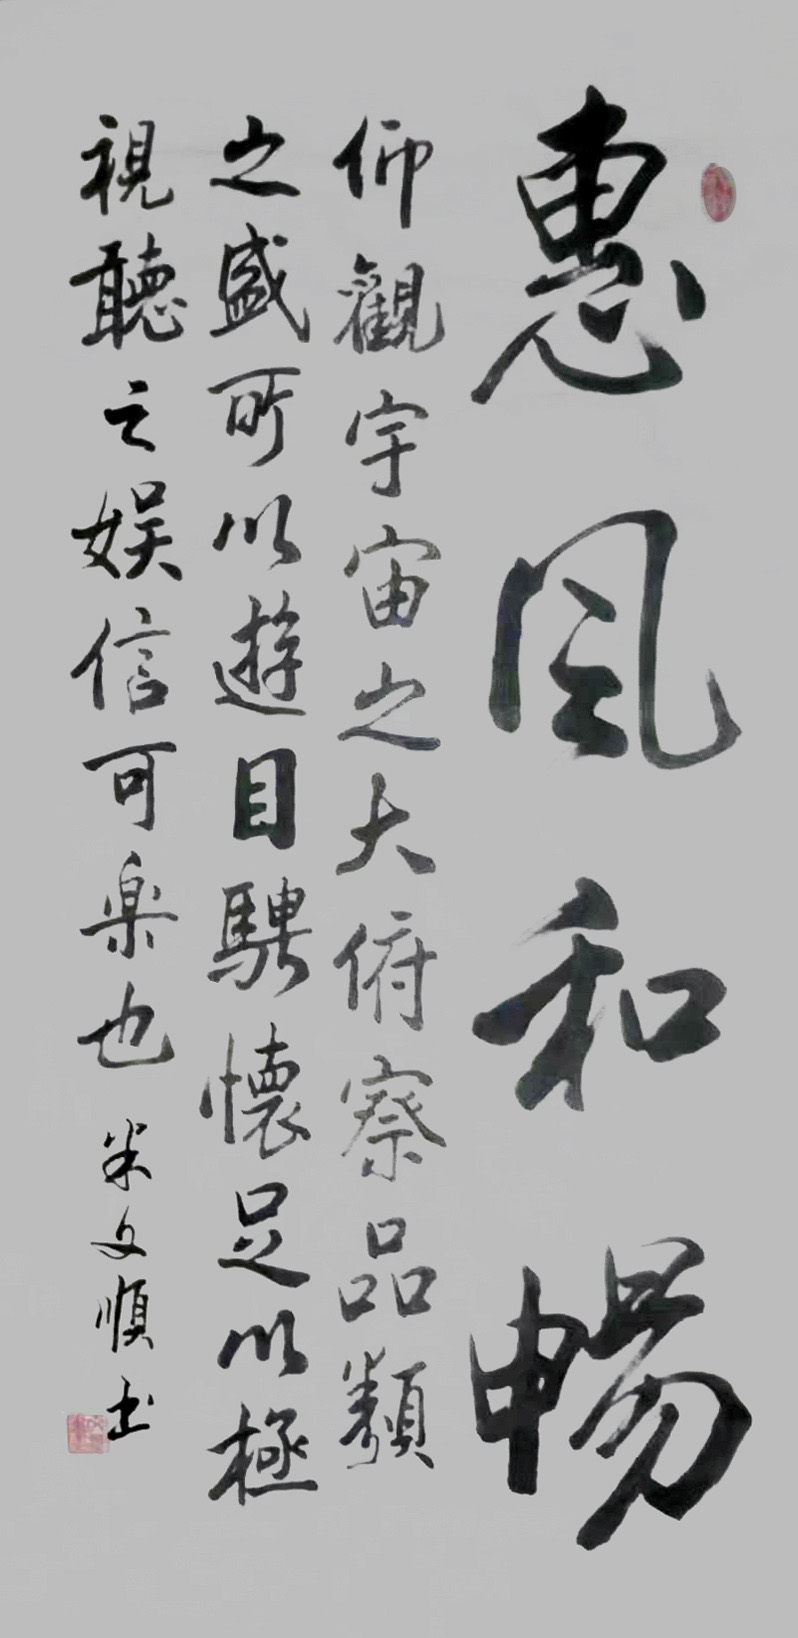 惠風和暢
仰觀宇宙之大俯察品類
之盛所以遊目騁懷足以極
視聽之娱信可樂也 米文順书